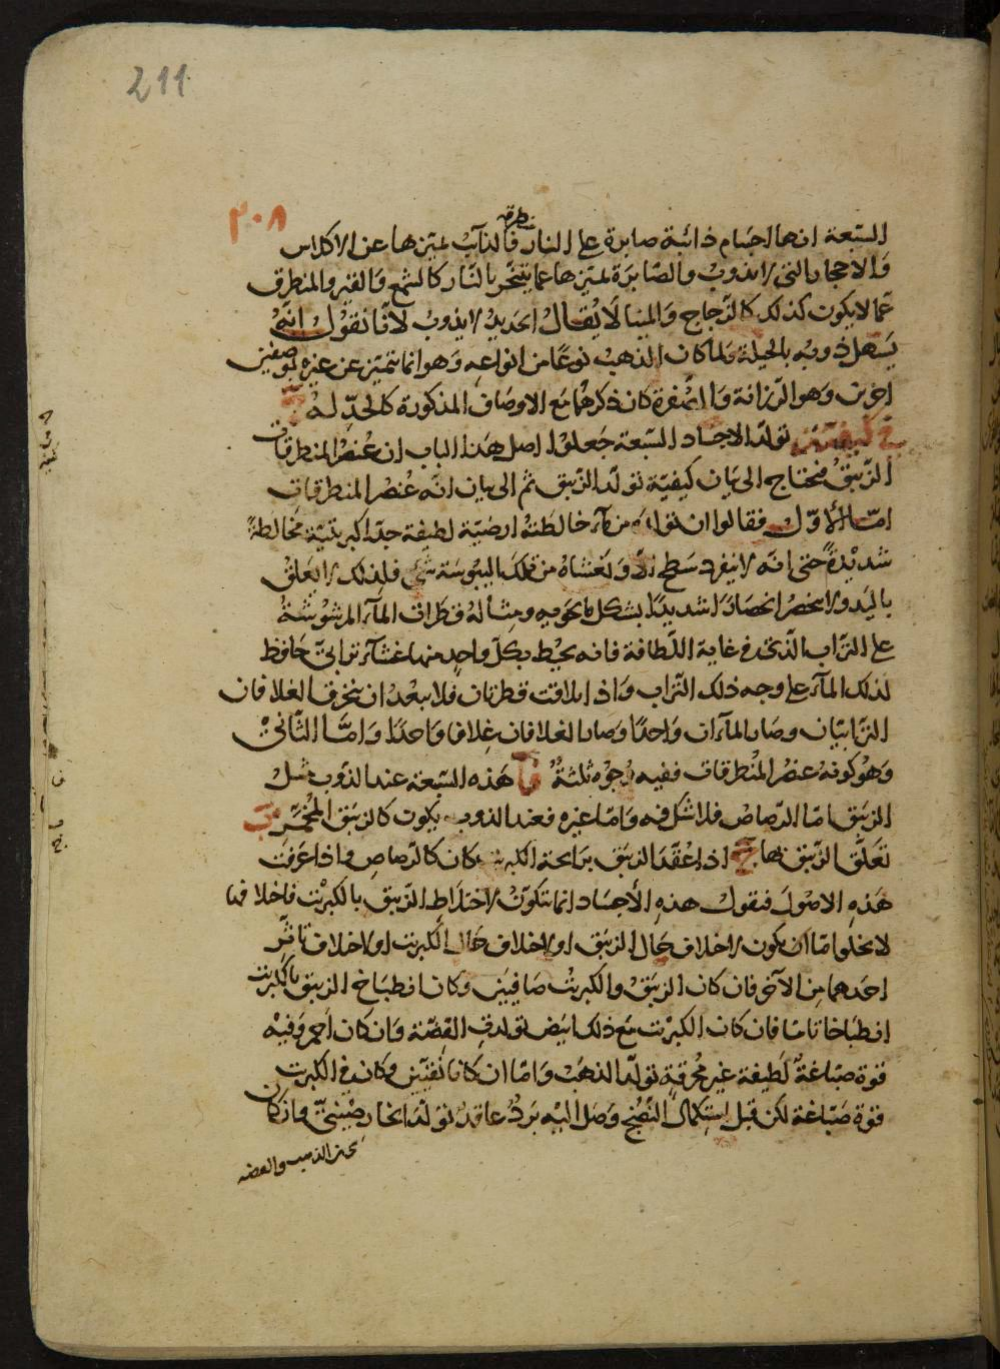 211
٢٠٨
منطرقة
السبعة انها اجسام ذائبة صابرة على النار فالذائب لتميزها عن الاكلاس
والاحجار التى لا يذوب والصابرة لتميزها عما يتبخر بالنار كالشمع والقير والمنطرق
عما لا يكون كذلك كالزجاج والمينا لا يقال الحديد لا يذوب لانا نقول انه
يسهل ذوبه بالحيلة ولما كان الذهب نوعا من انواعه وهو انما تتميز عن غيره لوصفين
اخرين وهو الرزانة والصفرة كان ذكرهما مع الاوصاف المذكورة كالحد له
فى كيفية تولد الاجساد السبعة جعلوا اصل هذا الباب ان عنصر المنطرقات
الزيبق فنحتاج الى بيان كيفية تولد الزيبق ثم الى بيان انه عنصر المنطرقات
امّا الأوّل فقالوا ان تولده من ماء خالطته ارضية لطيفة جدا كبريتية مخالطة
شديدة حتى انه لا ينفرد سطح الا وتغشاه من تلك اليبوسة شئ فلذلك لا يعلق
باليد ولا ينحصر انحصارا شديدا بشكل ما يحويه ومثاله قطرات الماء المرشوشة
على التراب الذى فى غاية اللطافة فانه يحيط بكل واحد منها غشاء ترابى حافظ
لذلك الماء على وجه ذلك التراب واذا تلاقت قطرتان فلا يبعد ان ينخرق الغلافان
الترابيان وصار الماءان واحدا وصار الغلافان غلافا واحدا وامّا الثانى
وهو كونه عنصر المنطرقات ففيه وجوه ثلثة آ هذه السبعة عند الذوب مثل
الزيبق امّا الرصاص فلا شك فيه وامّا غيره فعند الذوب يكون كالزيبق المحمر ب
تعلق الزيبق بها ج اذا عقد الزيبق برايحة الكبريت كان كالرصاص واذا عرفت
هذه الاصول فنقول هذه الأجساد انما تتكون لاختلاط الزيبق بالكبريت فاختلافها
لا يخلوا امّا ان يكون لاختلاف حال الزيبق او لاختلاف حال الكبريت او لاختلاف تاثر
احدهما من الآخر فان كان الزيبق والكبريت صافيين وكان انطباخ الزيبق بالكبريت
انطباخا تاما فان كان الكبريت مع ذلك ابيض تولدت الفضة وان كان احمر وفيه
قوة صباغة لطيفة غير محرقة تولد الذهب وامّا ان كانا نقيين وكان فى الكبريت
قوة صباغة لكن قبل استكمال النضج وصل اليه برد عاقد تولد الخارصينى وان كان